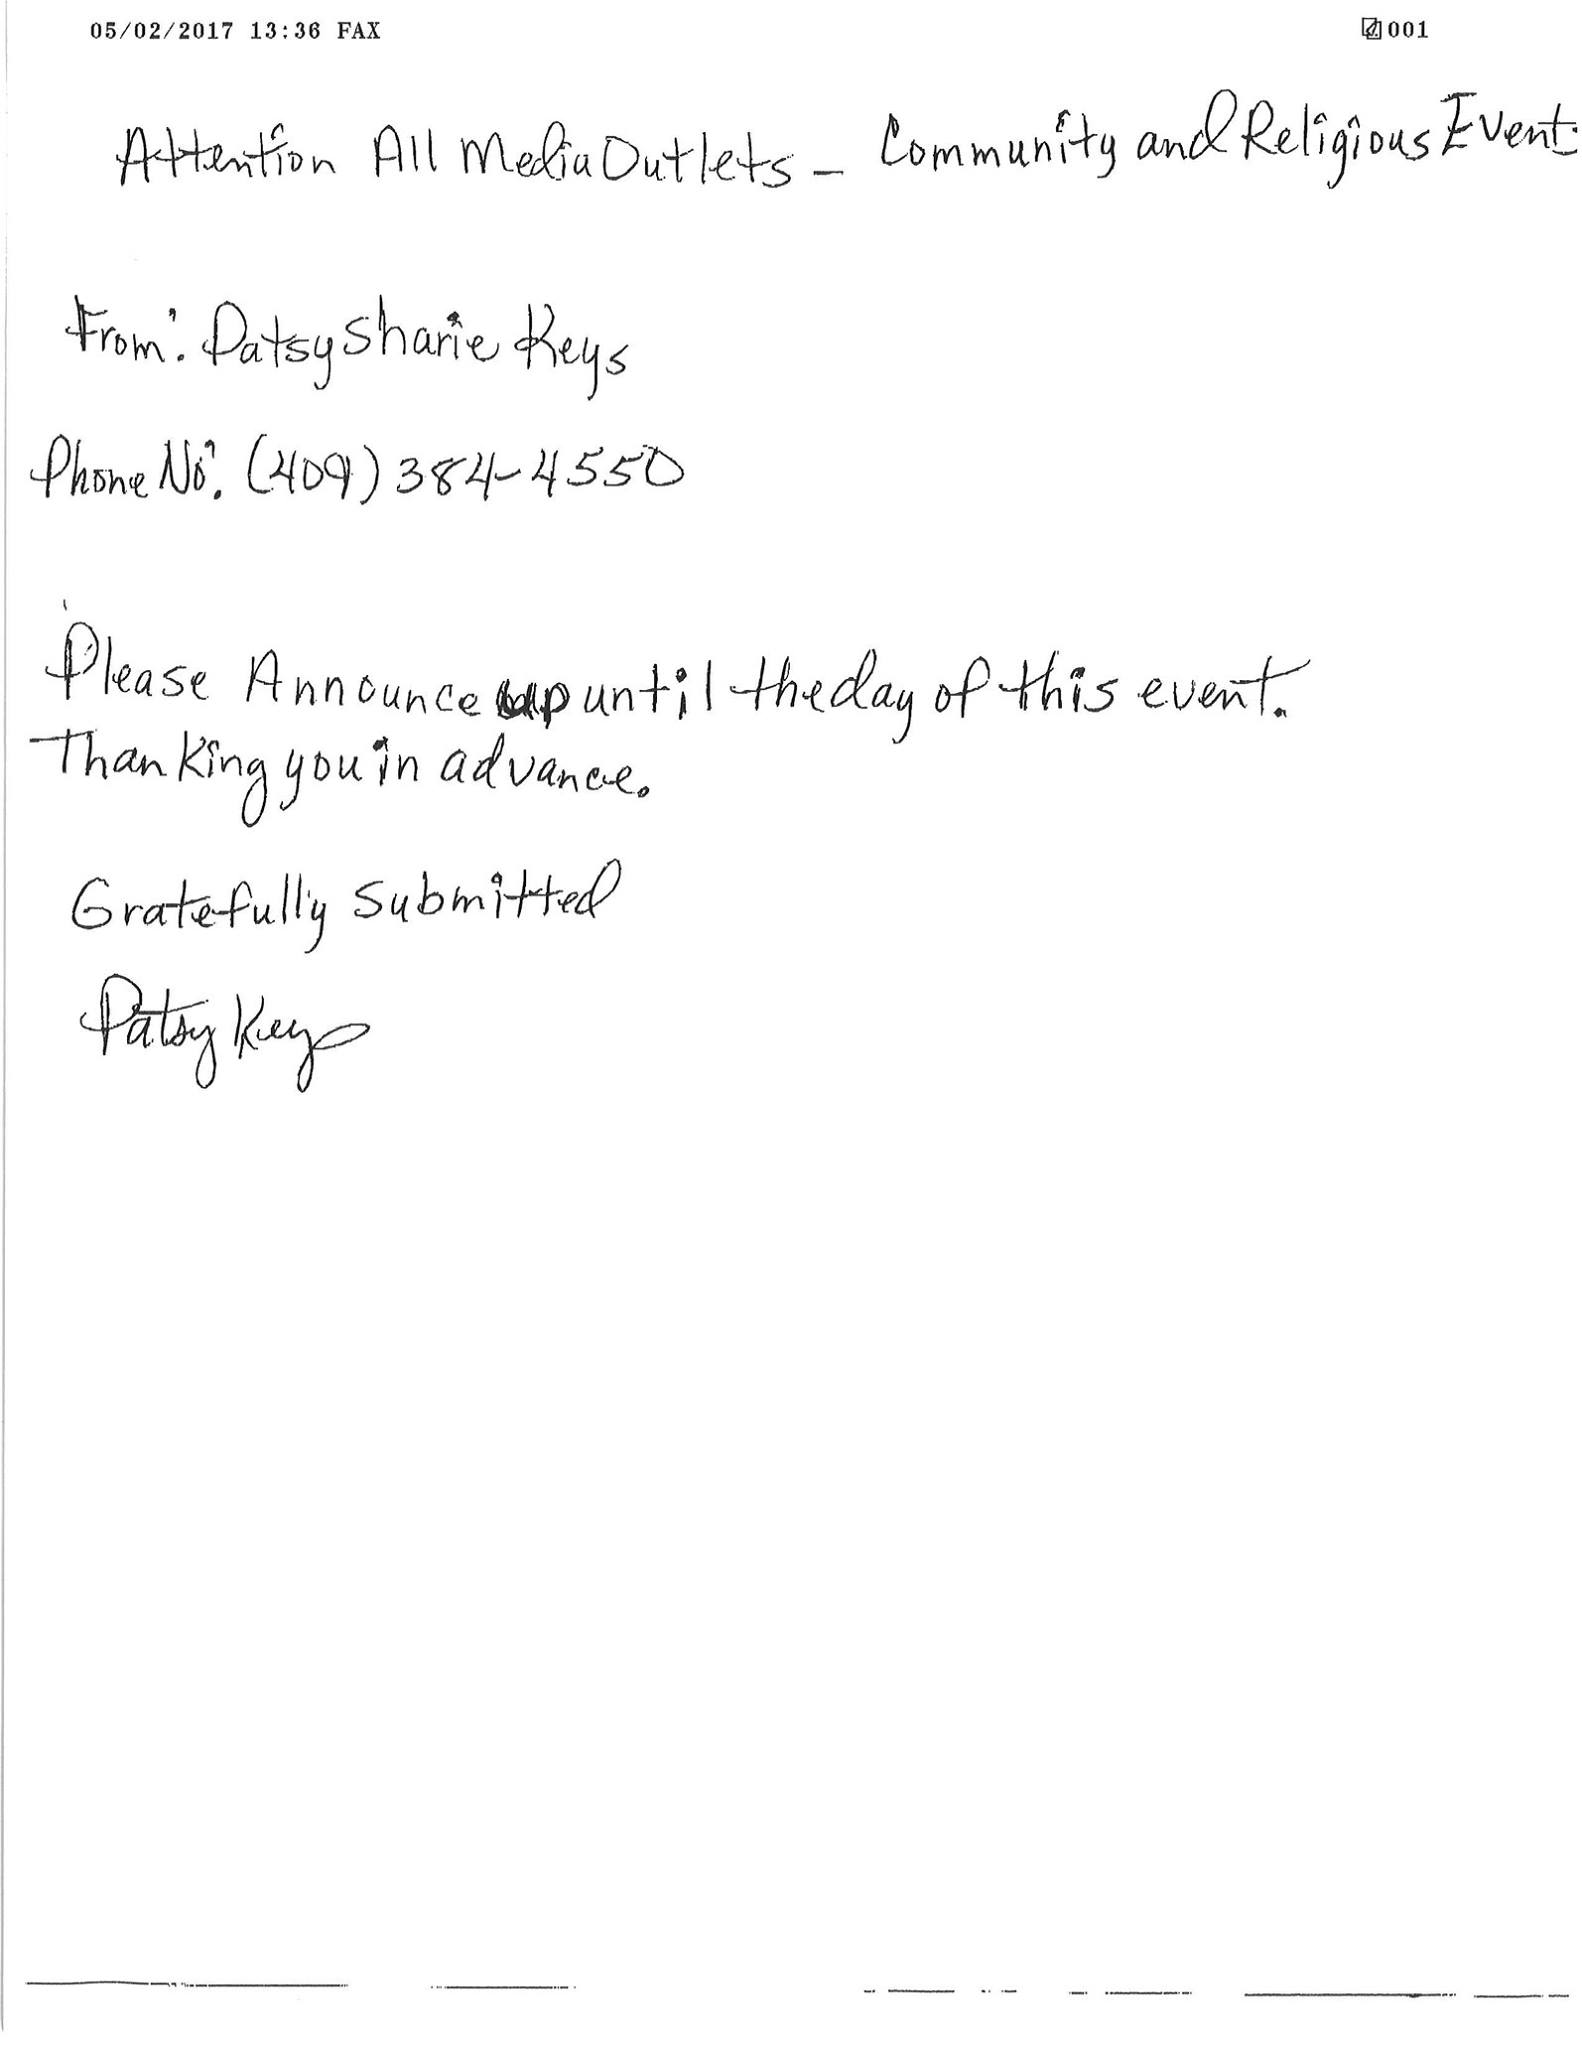 05/02/2017 13:36 FAX 001
Attention All Media Outlets - Community and Religious Event
From: Patsy Sharie Keys
Phone No: (409) 384-4550
Please Announce up until the day of this event.
Thanking you in advance.
Gratefully Submitted
Patsy Keys